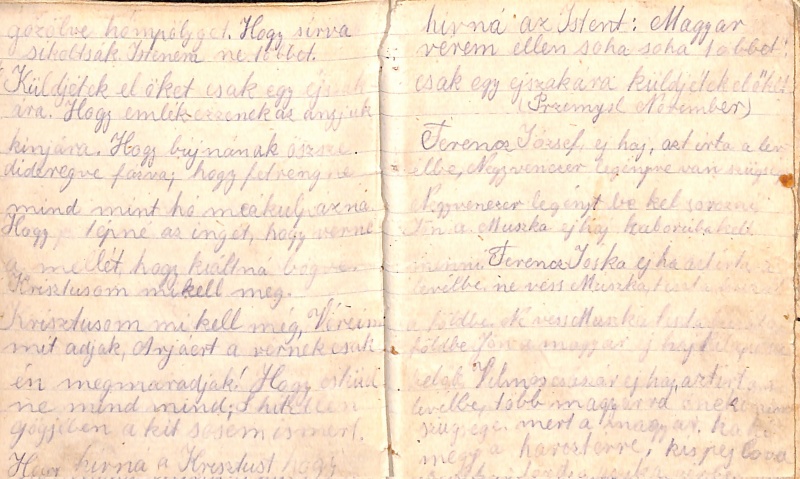 gőzölve hömpölyget. Hogy sirva
sikoltsák Istenem ne többet.
Küldjétek el őket csak egy éjszak
ára. Hogy emlékezzenek az anyjuk
kinjára. Hogy bujnának össze
dideregve fázva; hogy fetrengne
mind mint hó meakulpázna
Hogy tépné az ingét, hogy verné
a mellét, hogy kiáltná bőgve
Krisztusom mi kell még.
Krisztusom mi kell még, Véreim
mit adjak, Árjáért a vérnek csak
én megmaradjak! Hogy esküd
ne mind mind; S hitetlen
gőgjében a kit sosem ismert.
Hogy hivná a Krisztust hogy
hivná az Istent: Magyar
verem ellen soha soha többet!
csak egy éjszakára küldjétek el őket
(Przemysl November)
Ferencz József, ej haj, azt irta a lev
elbe, Negyvenezer legényre van szüksége
Negyvenezer legényt be kel sorozni
Jön a Muszka ej haj háborúba kell
menni. Ferencz Jóska ej ha azt irta
levélbe ne véss Muszka
a földbe. Ne véss Muszka
földbe Jön a magyar ej haj
Vilmos császár ej haj, azt irta
levélbe, több magyarra
szüksége. mert a magyar, ha ki
megy a harcztérre, kis pej lova